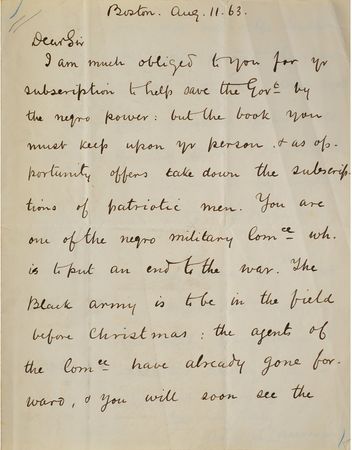 Boston. Aug. 11. 63.
Dear Sir
I am much obliged to you for yr
subscription to help save the Govt by
the negro power: but the book you
must keep upon yr person, & as op-
portunity offers take down the subscrip-
tions of patriotic men. You are
one of the negro military Comee wh.
is to put an end to the war. The
Black army is to be in the field
before Christmas: the agents of
the Comee have already gone for-
ward, & you will soon see the